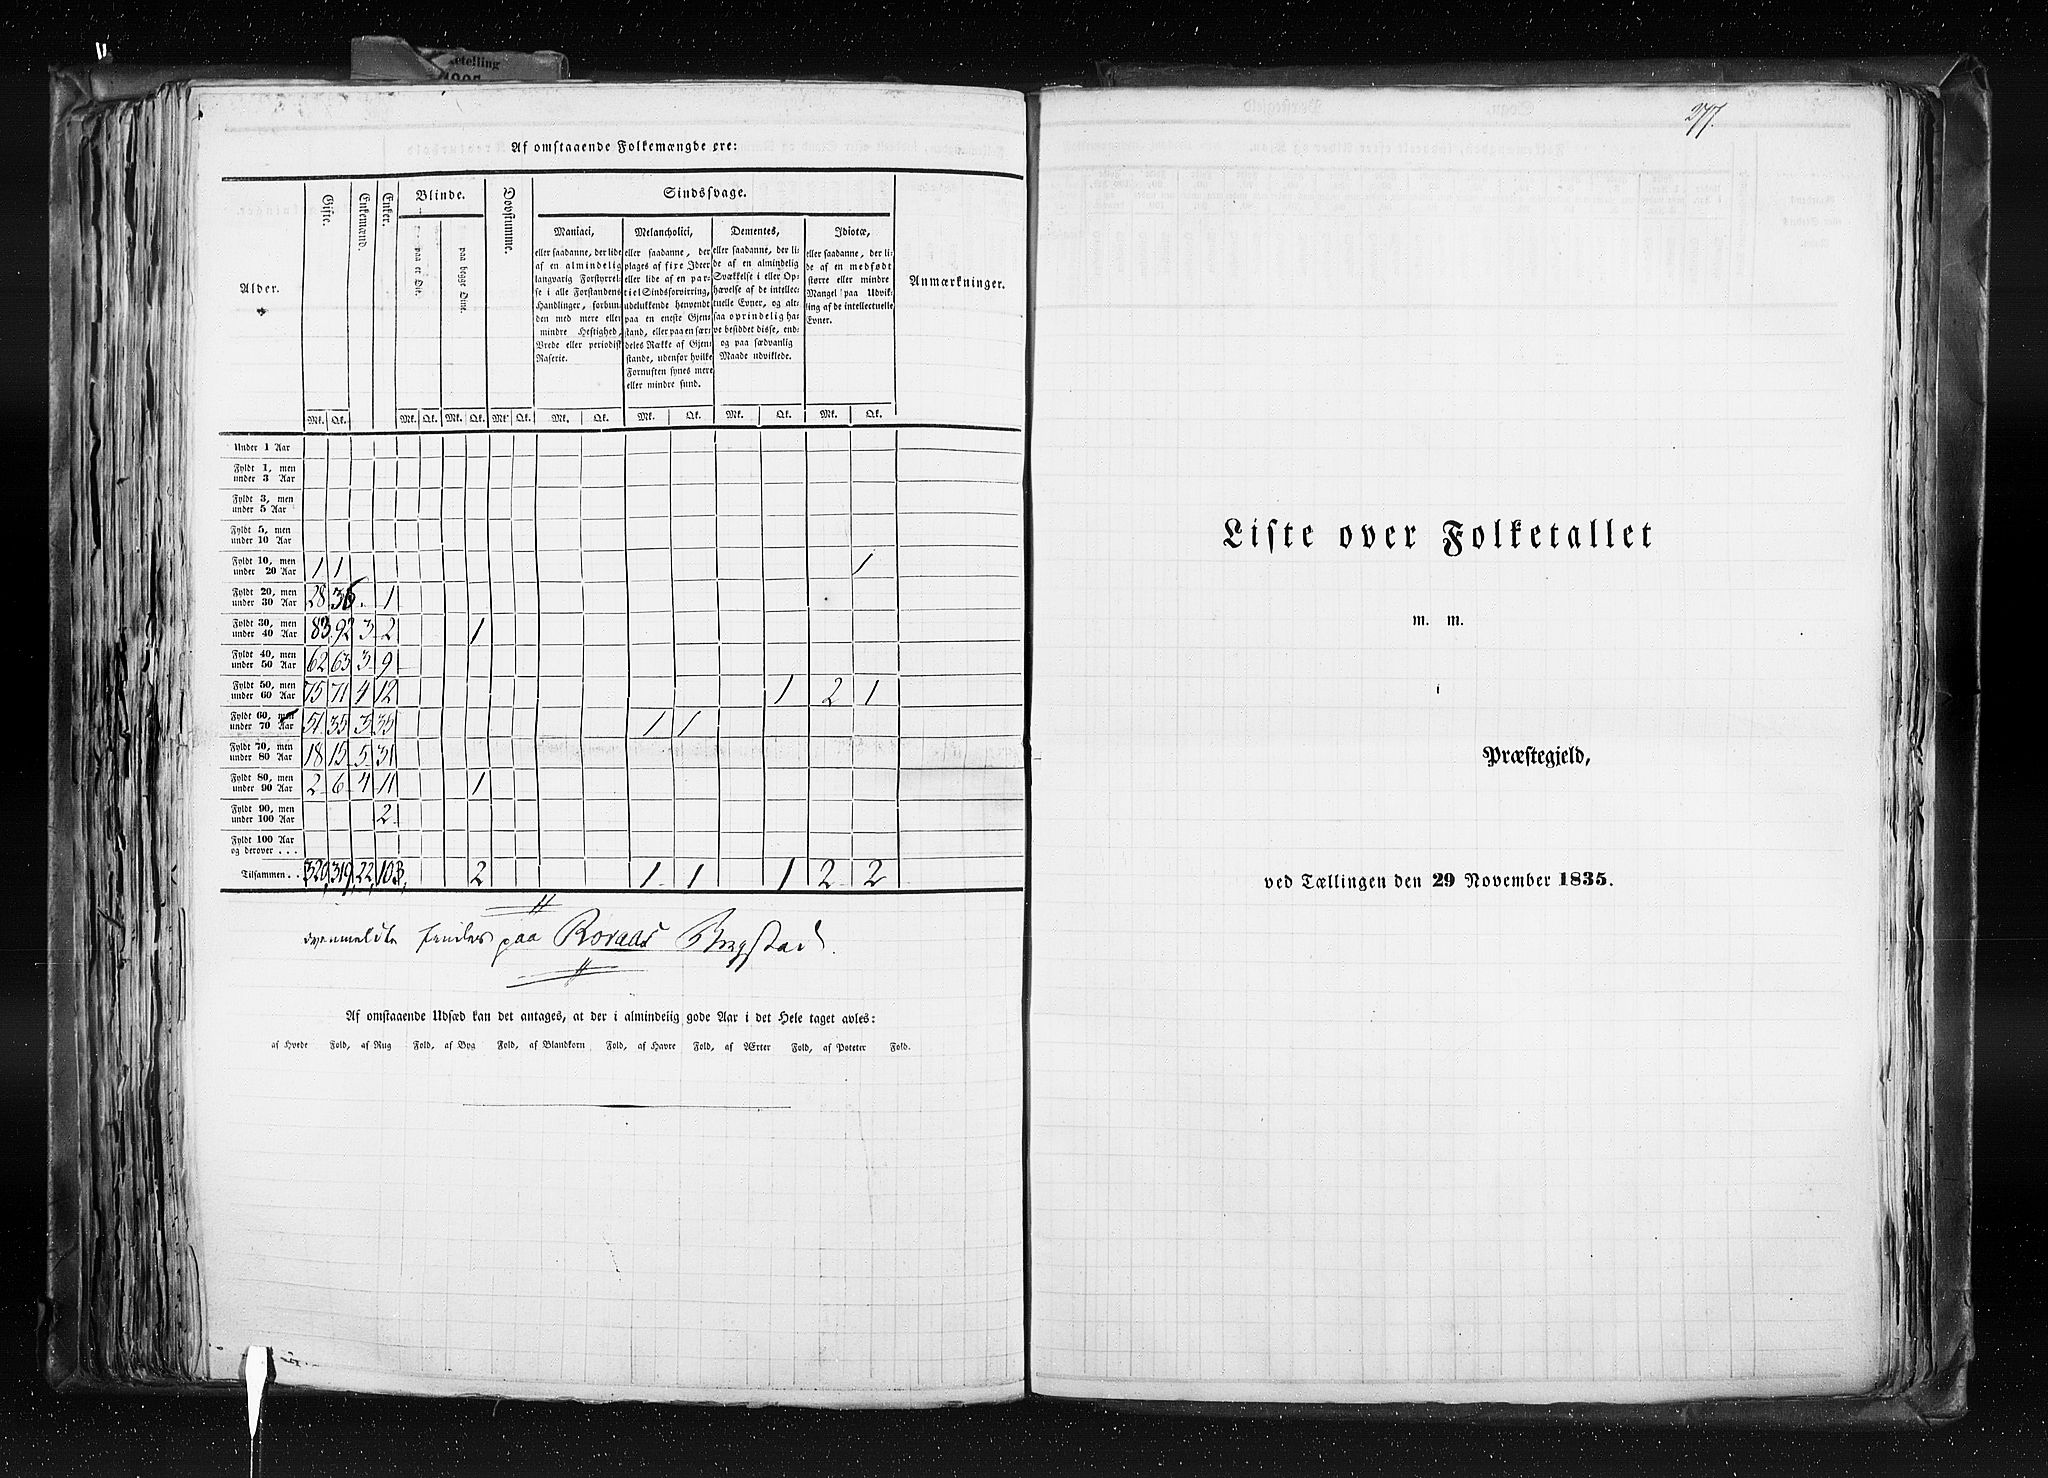 ketelling
Af omstaaende Folkemængde ere:
Alder.
Gifte.
Enkemænd.
Enker.
Blinde.
paa et Øie.
paa begge Øine.
Døvstumme.
Sindssvage.
Maniaci,
eller saadanne, der lide
af en almindelig
langvarig Forstyrrel-
se i alle Forstandens
Handlinger, forbun-
den med mere eller
mindre Heftighed,
Vrede eller periodisk
Raserie.
Melancholici,
eller saadanne, der
plages af fixe Ideer
eller lide af en par-
tiel Sindsforvirring,
udelukkende henvendt
paa en eneste Gjen-
stand, eller paa en sær-
deles Række af Gjen-
stande, udenfor hvilke
Fornuften synes mere
eller mindre sund.
Dementes,
eller saadanne, der li-
de af en almindelig
Svækkelse i eller Op-
hævelse af de intellec-
tuelle Evner, og alt-
saa oprindelig ha-
ve besiddet disse, end-
og paa sædvanlig
Maade udviklede.
Idiotæ,
eller saadanne, der li-
de af en medfødt
større eller mindre
Mangel paa Udvik-
ling af de intellectuelle
Evner.
Anmærkninger.
Mk. Qk. Mk. Qk. Mk. Qk. Mk. Qk. Mk. Qk. Mk. Qk. Mk. Qk. Mk. Qk.
Under 1 Aar
Fyldt 1, men
under 3 Aar
Fyldt 3, men
under 5 Aar
Fyldt 5, men
under 10 Aar
Fyldt 10, men
under 20 Aar 1 1 1
Fyldt 20, men
under 30 Aar 28 36 . 1
Fyldt 30, men
under 40 Aar 83 92 3 2 1
Fyldt 40, men
under 50 Aar 62 63 3 9
Fyldt 50, men
under 60 Aar 75 71 4 12 1 2 1
Fyldt 60, men
under 70 Aar 51 35 3 35 1 1
Fyldt 70, men
under 80 Aar 18 15 5 31
Fyldt 80, men
under 90 Aar 2 6 4 11 1
Fyldt 90, men
under 100 Aar 2
Fyldt 100 Aar
og derover . . .
Tilsammen . . 320 319 22 103 2 1 1 1 2 2
ovenmeldte findes paa Roraas Bergstad.
Af omstaaende Udsæd kan det antages, at der i almindelig gode Aar i det Hele taget avles:
af Hvede Fold, af Rug Fold, af Byg Fold, af Blandkorn Fold, af Havre Fold, af Ærter Fold, af Poteter Fold.
277.
Liste over Folketallet
m. m.
i
Præstegjeld,
ved Tællingen den 29 November 1835.